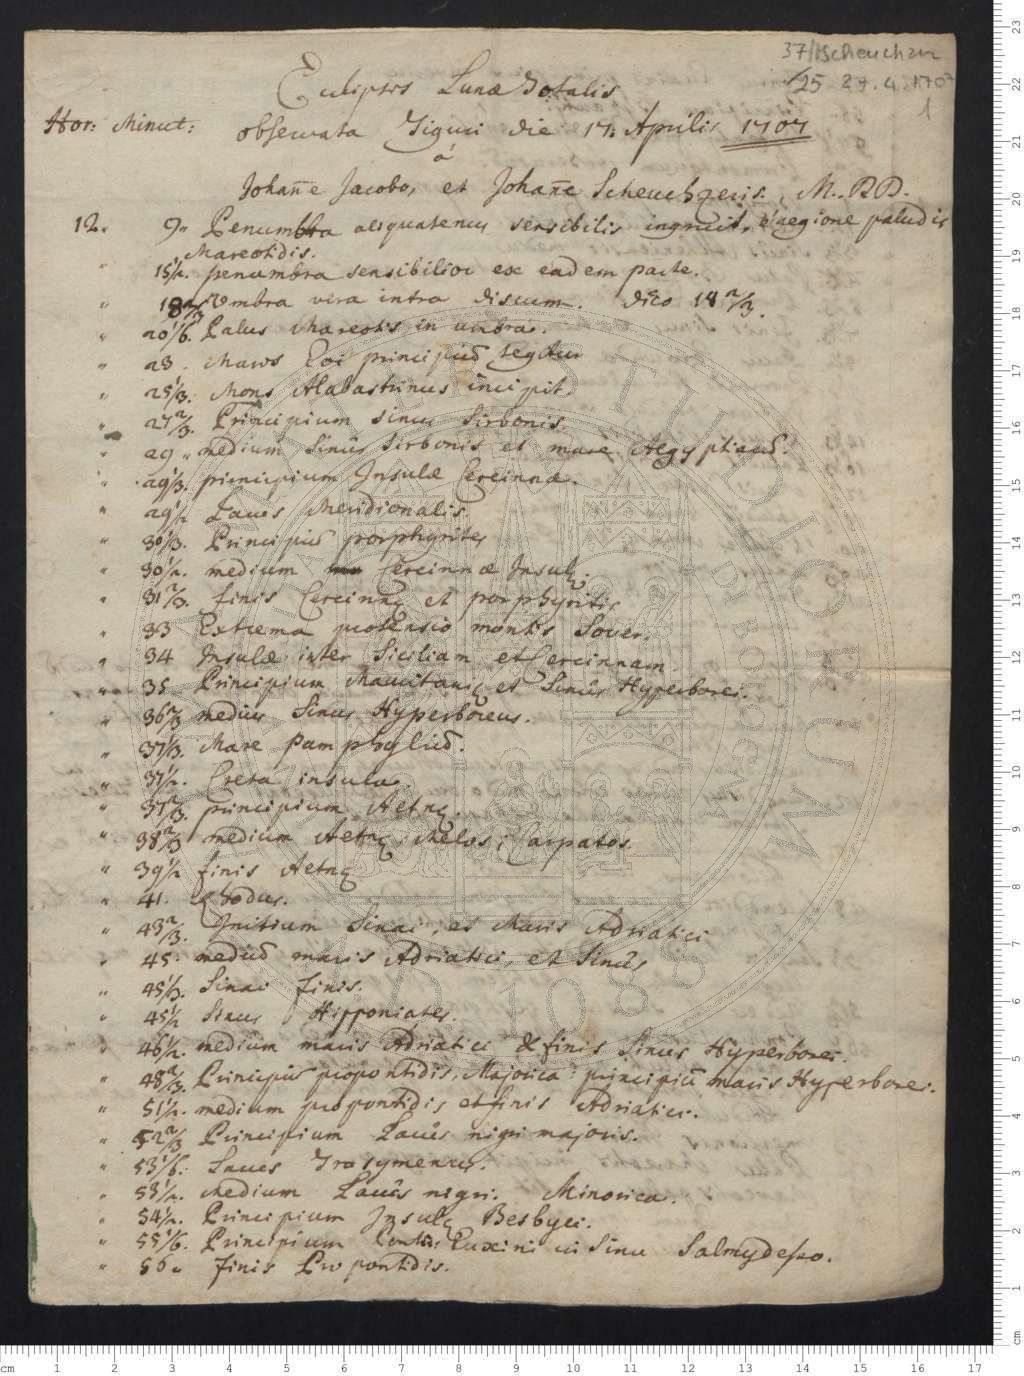 37/Scheuchzer
25 27.4.1707
1
Eclipsis Lunæ Totalis
Hor: Minut: observata Tiguri die 17. Aprilis 1707
à
Johan̄e Jacobo, et Johan̄e Scheuchzeris. M. DD.
12. 9 Penumbra aliquatenus sensibilis ingruit, è regione paludis
Mareotidis.
" 15½. penumbra sensibilior ex eadem parte.
" 18⅔ Umbra vera intra discum. dico 18⅔.
" 20⅙. Palus Mareotis in umbra.
" 23. Maris Eoi principiū tegitur
" 25⅓: Mons Alabastrinus incipit.
" 27⅔. Principium sinus Sirbonis.
" 29 " medium Sinûs Sirbonis et mare Aegyptiacū.
" 29⅓. principium Insulæ Cercinnæ.
" 29½ Lacus Meridionalis.
" 30⅓. Principiū porphyritis
" 30½. medium Cercinnæ Insulę.
" 31⅔. finis Cercinnę et porphyritis
" 33 Extrema protensio montis Sover.
" 34 Insulæ inter Siciliam et Cercinnam.
" 35 Principium Mauritanię et Sinûs Hyperborei.
" 36⅔ medius Sinus Hyperboreus.
" 37⅓. Mare Pamphyliū.
" 37½. Creta insula.
" 37⅔. principium Aetnę.
" 38⅔ medium Aetnę; Melos; Carpatos.
" 39½ finis Aetnę
" 41. Rhodus.
" 43⅔. Initium Sinai, et Maris Adriatici
" 45. mediū maris Adriatici, et Sinûs
" 45⅓. Sinai finis.
" 45½ Sinus Hipponiates.
" 46½. medium maris Adriatici & finis Sinus Hyperborei.
" 48⅔. Principiū propontidis, Majorica: principiū maris Hyperborei.
" 51½. medium propontidis et finis Adriatici.
" 52⅔ Principium Lacûs nigri majoris.
" 53⅙: Lacus Trasymenus.
" 53½. Medium Lacûs nigri. Minorica.
" 54½. Principium Insulę Besbyci.
" 55⅙. Principium Ponti Euxini in Sinu Salmydesso.
" 56 " finis Propontidis.